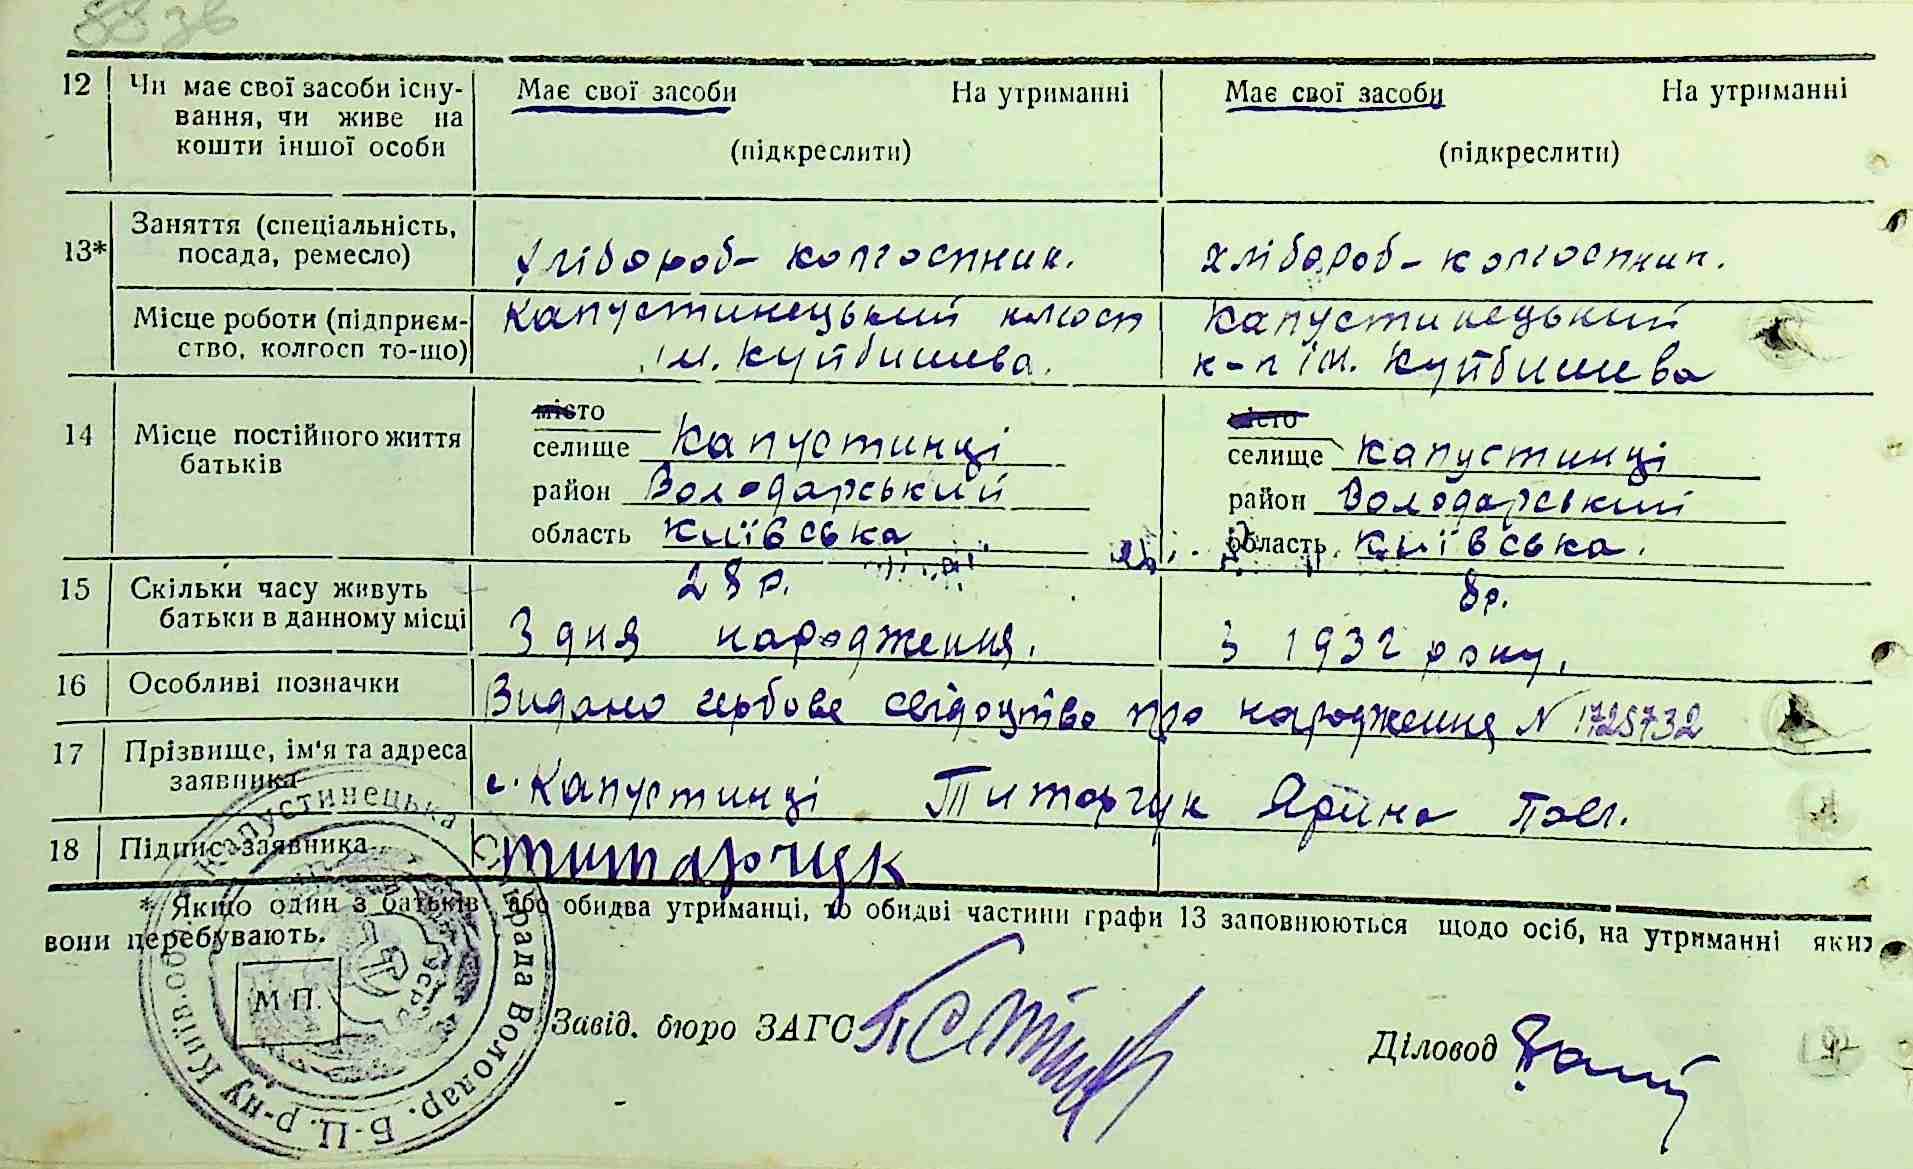 8838
12 Чи має свої засоби існу- Має свої засоби На утриманні Має свої засоби На утриманні
вання, чи живе на
кошти іншої особи (підкреслити) (підкреслити)
13* Заняття (спеціальність,
посада, ремесло) хлібороб- колгоспник. хлібороб- колгоспник.
Місце роботи (підприєм- Капустинецький колгосп Капустинецький
ство, колгосп то-що) ім. Куйбишева. к-п ім. Куйбишева
14 Місце постійного життя місто місто
батьків селище Капустинці селище Капустинці
район Володарський район Володарський
область Київська область Київська.
15 Скільки часу живуть 28 р. 8 р.
батьки в данному місці З дня народження. з 1932 року.
16 Особливі позначки Видано гербове свідоцтво про народження N 1725732
17 Прізвище, ім'я та адреса
заявника с. Капустинці Титарчук Ярина Павл.
18 Підпис заявника Титарчук
* Якщо один з батьків або обидва утриманці, то обидві частини графи 13 заповнюються щодо осіб, на утриманні яких
вони перебувають.
М П.
Капустинецька Сільрада Володар. Б-Ц. р-ну Київ. обл.
УСРР
Завід. бюро ЗАГС
Діловод